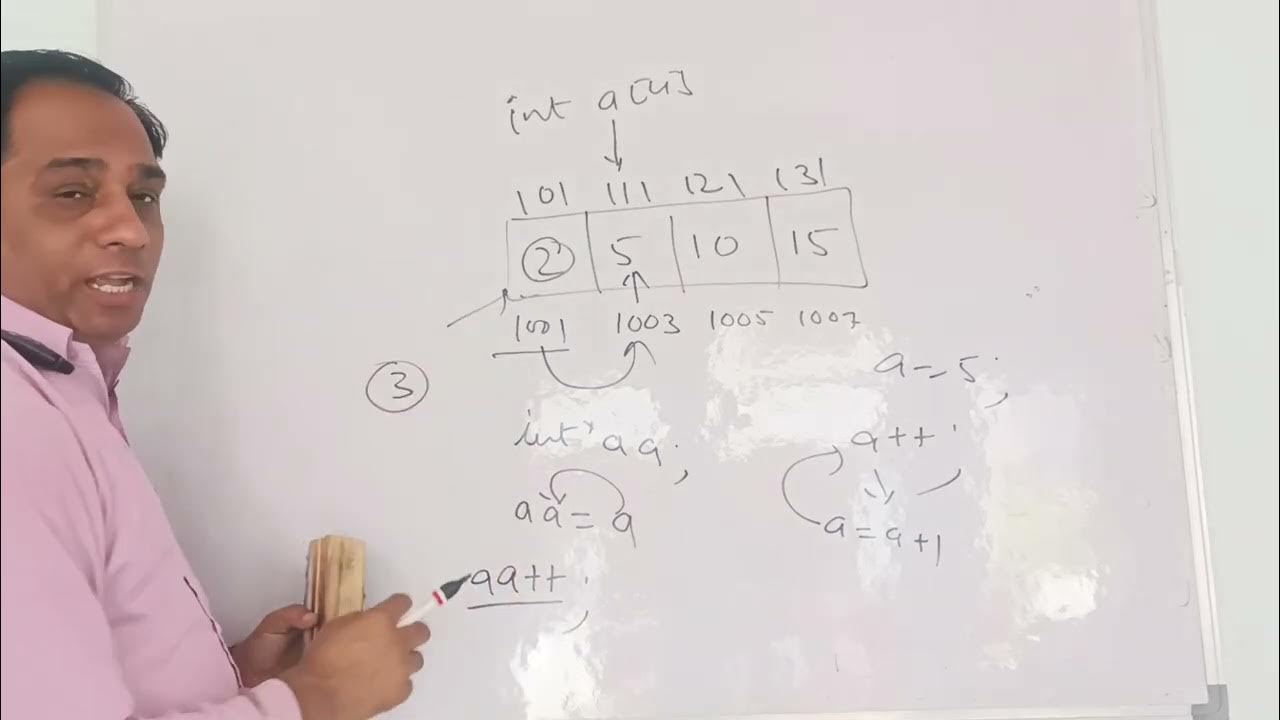 int a[4]
101 111 121 131
2 5 10 15
1001 1003 1005 1007
3
a = 5;
int *aa;
a++;
aa = a
a = a+1
aa++;